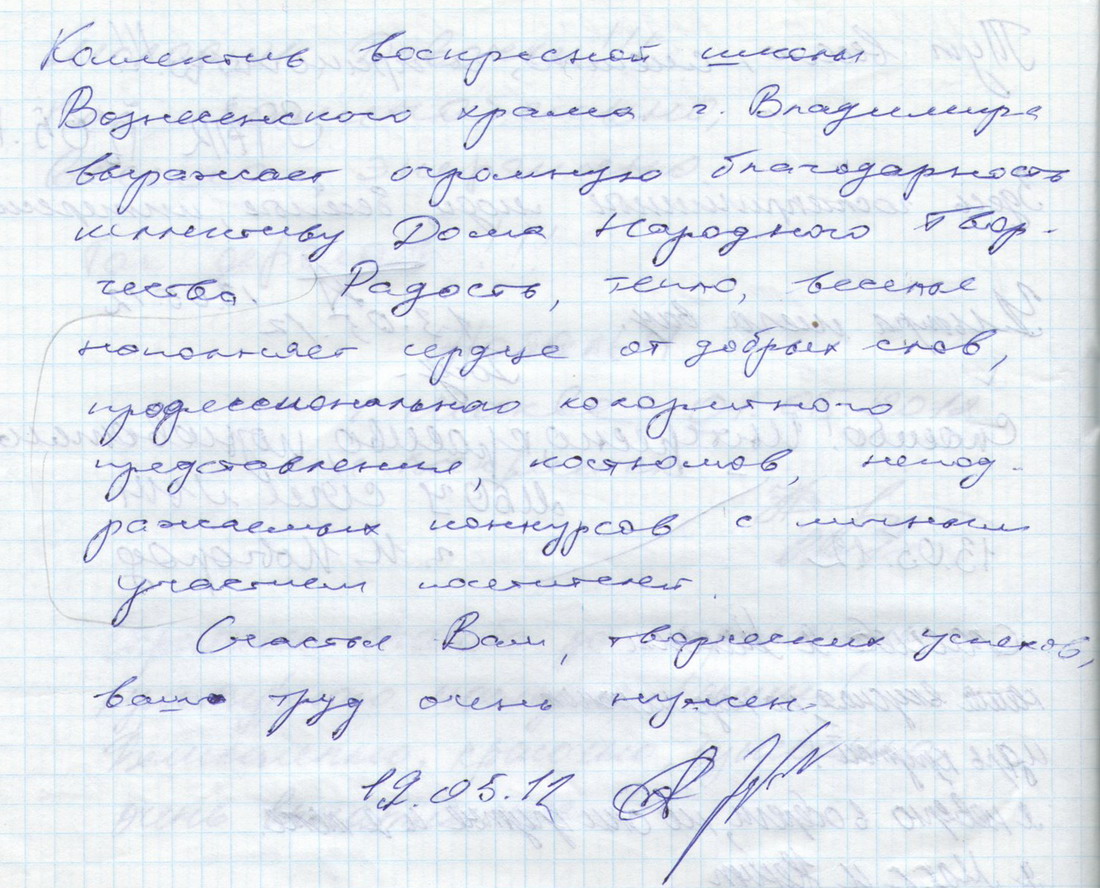 Коллектив воскресной школы
Вознесенского храма г. Владимира
выражает огромную благодарность
коллективу Дома Народного Твор-
чества. Радость, тепло, веселье
наполняет сердце от добрых слов,
профессионального колоритного
представления, костюмов, непод-
ражаемых конкурсов с личным
участием посетителей.
Счастья Вам, творческих успехов,
ваш труд очень нужен.
19.05.12